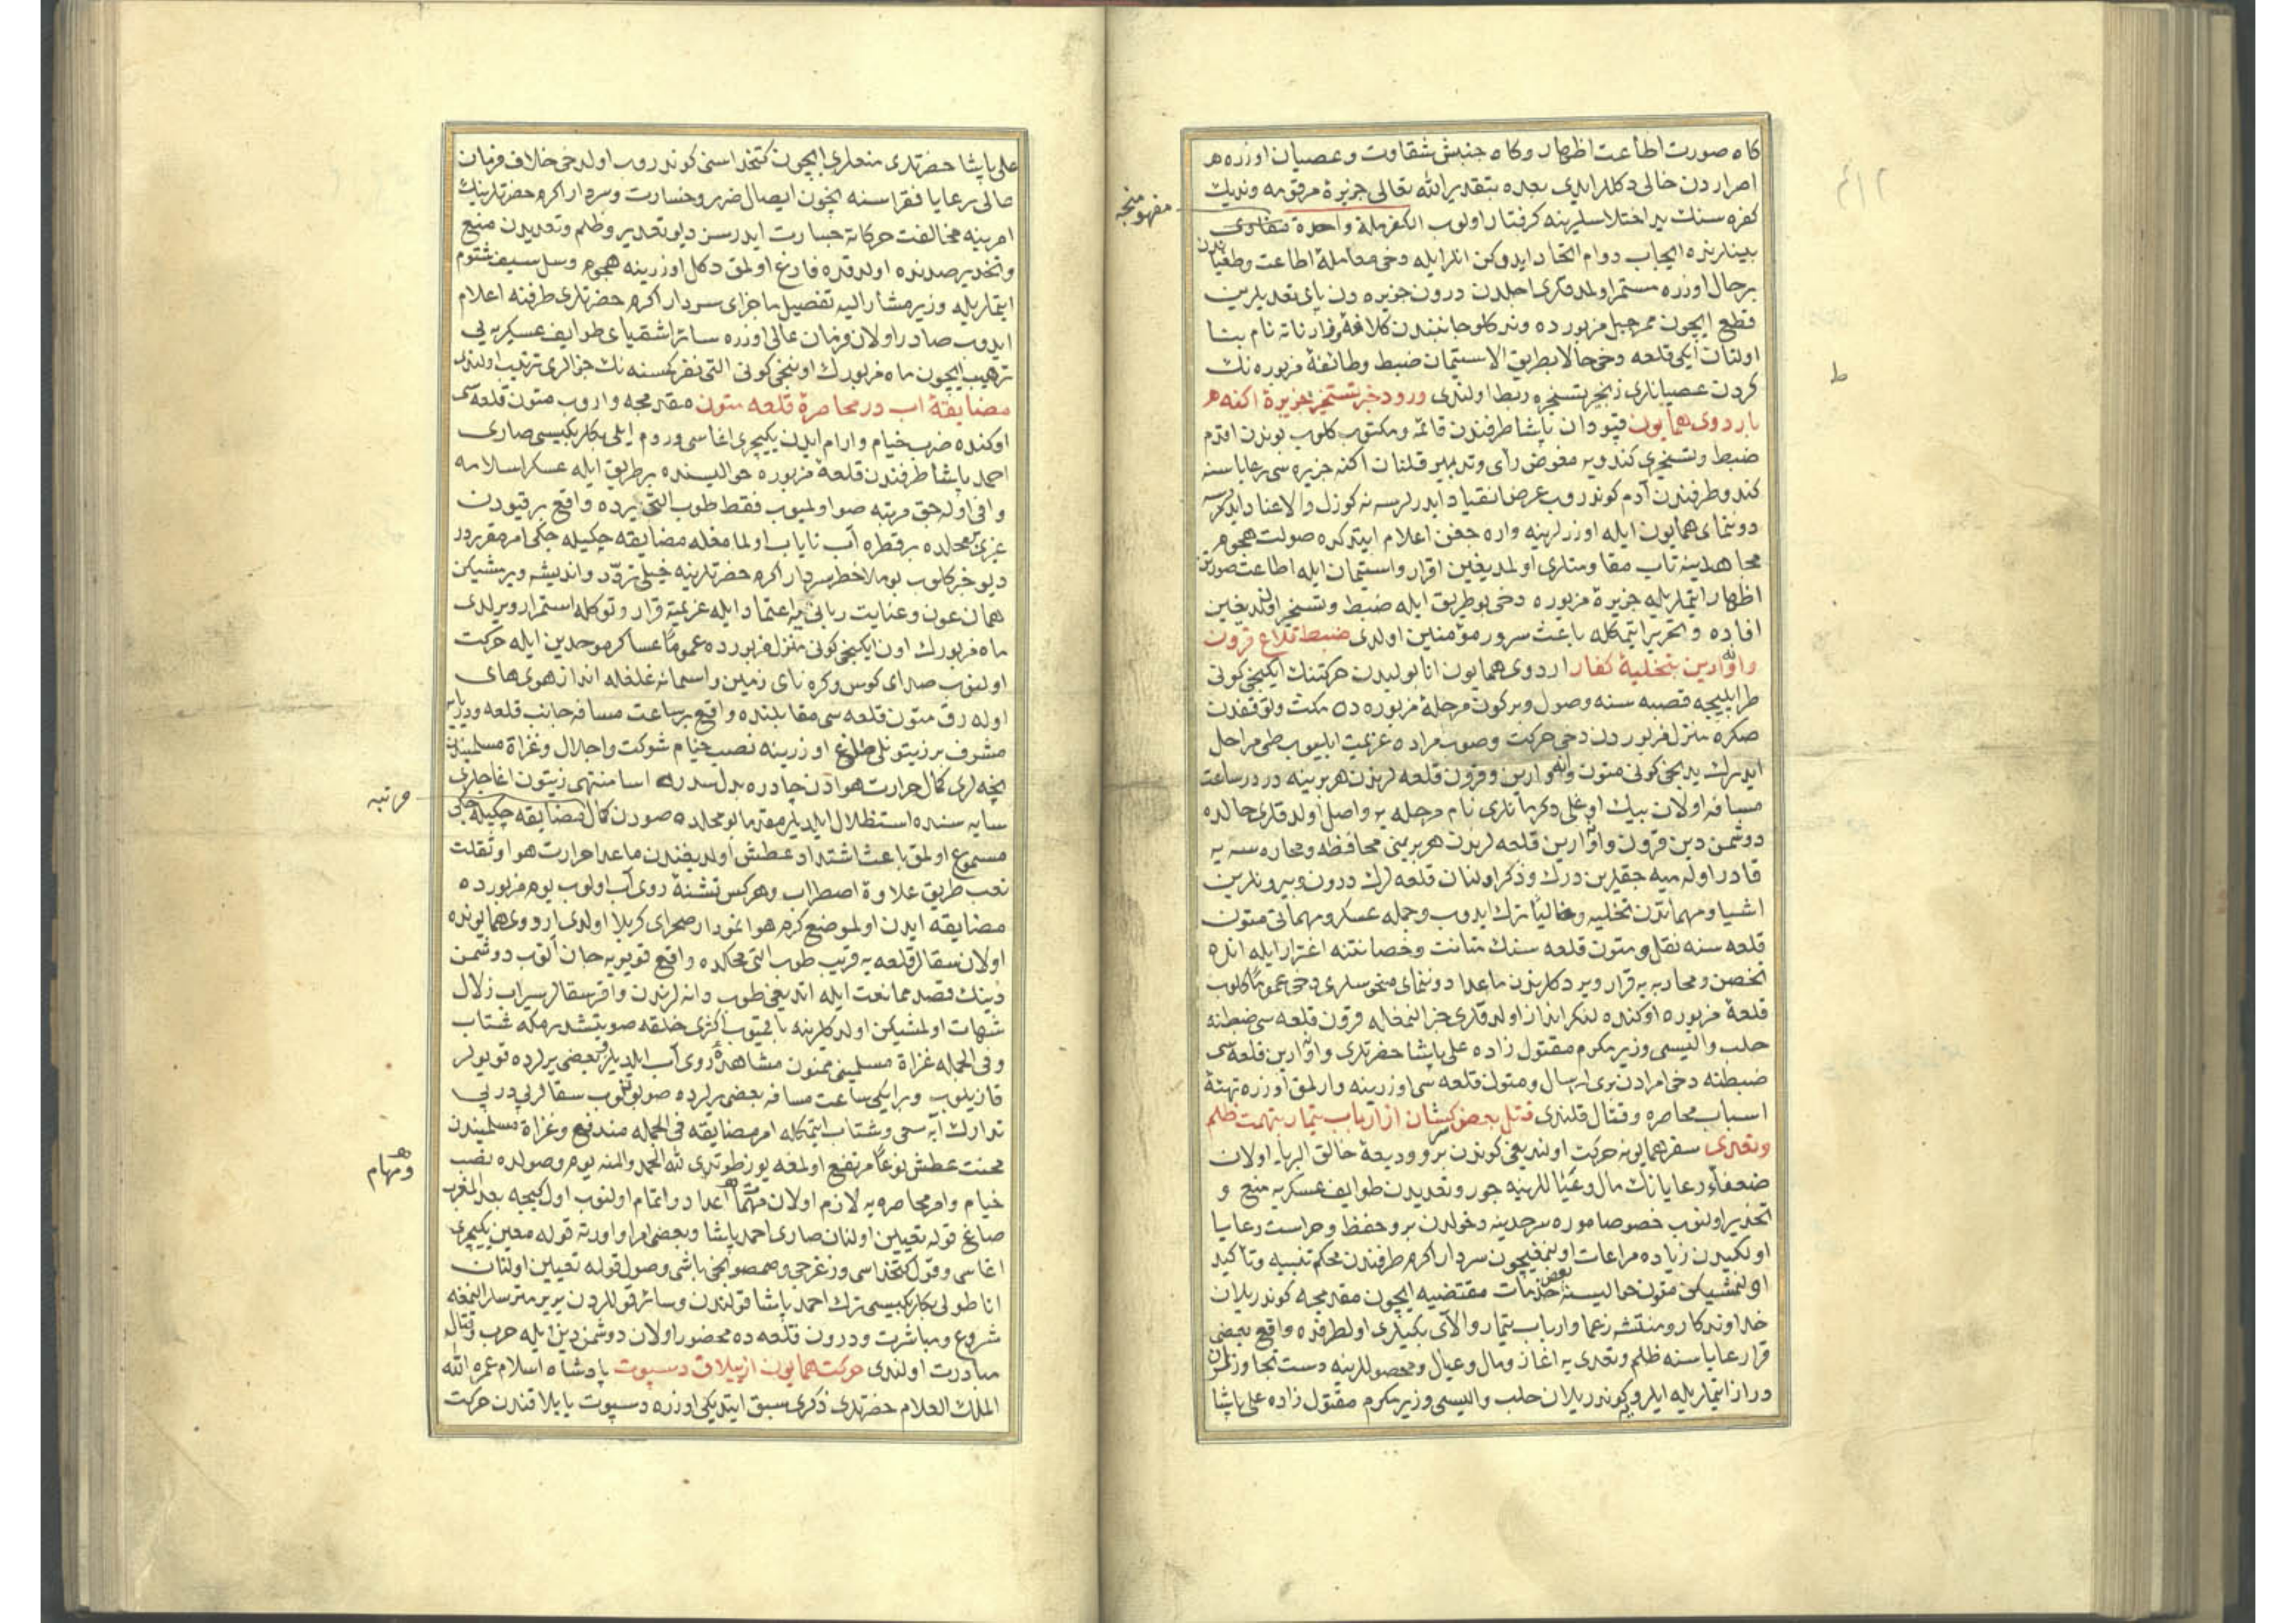 كاه صورت اطاعت اظهار وكاه جنبش شقاوت وعصيان اوزره
اصراردن خالى دكللر ايدى بعده بتقدير الله تعالى جزيرۀ مرقومه ونديك
كفره سنك يد اختلاسلرينه كرفتار اولوب الكفر ملة واحدة
مفهومنجه
بينلرينده ايجاب دوام اتحاد ايدوكن انلر ايله دخى معامله اطاعت وطغياندن
بر حال اوزره مستمر اولمدقلرى اجلدن درون جزيره دن پاى تعديلرين
قطع ايچون ممر جبل مزبورده ونركلو جانبندن كلافه وفارناته نام بنا
اولنان ايكى قلعه دخى حالا بطريق الاستيمان ضبط وطائفۀ مزبوره نك
ط
كردن عصيانلرى زنجير تسخيره ربط اولندى ورود خبر تسخير جزيرۀ اكنه
باردوى همايون قپودان پاشا طرفندن قائمه ومكتوب كلوب بوندن اقدم
ضبط وتسخيرى كندويه مفوض رأى وتدبير قلنان اكنه جزيره سى رعاياسنه
كندو طرفندن آدم كوندروب عرض انقياد ايدرلرسه نه كوزل والا عناد ايدرلرسه
دوننماى همايون ايله اوزرلرينه واره جغن اعلام ايتدكده صولت هجوم
مجاهدينه تاب مقاومتلرى اولمديغين اقرار واستيمان ايله اطاعت صورتن
اظهار ايتملريله جزيرۀ مزبوره دخى بو طريق ايله ضبط وتسخير اولنديغين
افاده وتحرير ايتمكله باعث سرور مؤمنين اولدى ضبط قلاع قرون
واوارين بتخليۀ كفار اردوى همايون انابوليدن حركتنك ايكنجى كونى
طرابليجه قصبه سنه وصول وبر كون مرحلۀ مزبوره ده مكث وتوقفدن
صكره منزل مزبوردن دخى حركت وصوب مراده عزيمت ايليوب طى مراحل
ايدرك يدنجى كونى متون واوارين وقرون قلعه لرندن هر برينه دردر ساعت
مسافه اولان بيك اوغلى دكرمانلرى نام مرحله يه واصل اولدقلرى حالده
دوشمن دين قرون واوارين قلعه لرندن هر بريني محافظه ومحارسه يه
قادر اوله ميه جقلرين درك وذكر اولنان قلعه لرك درون وبيرونلرين
اشيا ومهماتدن تخليه وخاليًا ترك ايدوب وجمله عسكر ومهماتى متون
قلعه سنه نقل ومتون قلعه سنك متانت وحصانتنه اغترار ايله انده
تحصن ومحاربه يه قرار ويردكلرندن ماعدا دوننماى منحوسلرى دخى عموما كلوب
قلعۀ مزبوره اوكنده لنكر انداز اولدقلرى خبر النمغله قرون قلعه سى ضبطنه
حلب واليسى وزير مكرم مقتول زاده على پاشا حضرتلرى واوارين قلعه سى
ضبطنه دخى امرادن برى ارسال ومتون قلعه سى اوزرينه وارلمق اوزره تهيئۀ
اسباب محاصره وقتال قلندى قتل بعض كسان از ارباب تيمار بتهمت ظلم
وتعدى سفر همايونه حركت اولنديغى كوندن برو وديعۀ خالق البرايا اولان
ضعفاء رعايانك مال وعياللرينه جور وتعديدن طوايف عسكريه منع و
تحذير اولنوب خصوصا موره سرحدينه دخولدن برو حفظ وحراست رعايا
اولكيدن زياده مراعات اولنمغيچون سردار اكرم طرفندن محكم تنبيه وتأكيد
اولنمشيكن متون حواليسنه بعض خدمات مقتضيه ايچون مقدمجه كوندريلان
خداوندكار ومنتشه زعما وارباب تيمار والاى بكيلرى اولطرفده واقع بعض
قرا رعاياسنه ظلم وتعدى يه اغاز ومال وعيال ومحصوللرينه دست تجاوزلرن
دراز ايتملريله ايلرو كوندريلان حلب واليسى وزير مكرم مقتول زاده على پاشا
على پاشا حضرتلرى منعلرى ايچون كتخداسنى كوندروب اولدخى خلاف فرمان
عالى رعايا فقراسنه ايچون ايصال ضرر وخسارت وسردار اكرم حضرتلرينك
امرينه مخالفت حركاته جسارت ايدرسن ديو تقدير وظلم وتعديدن منع
وتحذير صددنده اولدقده فارغ اولمق دكل اوزرينه هجوم وسل سيف شتوم
ايتملريله وزير مشار اليه تفصيل ماجراى سردار اكرم حضرتلرى طرفنه اعلام
ايدوب صادر اولان فرمان عالى اوزره سائر اشقياى طوايف عسكريه يى
ترهيب ايچون ماه مزبورك اوننجى كونى التى نفر كمسنه نك جزالرى ترتيب اولندى
مضايقۀ اب در محاصرۀ قلعه متون مقدمجه واروب متون قلعه سى
اوكنده ضرب خيام وارام ايدن يكيچرى اغاسى وروم ايلى بكلربكيسى صارى
احمد پاشا طرفندن قلعۀ مزبوره حواليسنده بر طريق ايله عسكر اسلامه
وافى اوله جق مرتبه صو اولميوب فقط طوب التى يرده واقع بر قيودن
غيرى محلده بر قطره آب ناياب اولمغله مضايقه چكيله جكى امر مقرردر
ديو خبر كلوب بو ملاحظه سردار اكرم حضرتلرينه خيلى تردّد وانديشه ويرمشيكن
همان عون وعنايت ربانى يه اعتماد ايله عزيمته قرار وتوكله استمرار ويرلدى
ماه مزبورك اون ايكنجى كونى منزل مزبورده عموماً عساكر موحدين ايله حركت
اولنوب صداى كوس وكره ناى زمين واسمانه غلغله انداز هوى هاى
اوله رق متون قلعه سى مقابلنده واقع بر ساعت مسافه جانب قلعه ودريايه
مشرف بر زيتونلى طاغ اوزرينه نصب خيام شوكت واجلال وغزاة مسلمينك
نيجه لرى كمال حرارت هوادن چادره بدل سدره اسا منتهى زيتون اغاجلرى
سايه سنده استظلال ايلديلر مقدما بو محلده صودن كمال مضايقه چكيله جكى
مرتبه
مسموع اولمق باعث اشتداد عطش اولديغندن ماعدا حرارت هوا وثقلت
تعب طريق علاوۀ اضطراب وهر كس تشنۀ روى آب اولوب يوم مزبورده
مضايقه ايدن اولموضع كرم هوا نمودار صحراى كربلا اولدى اردوى همايونده
اولان سقالر قلعه يه قريب طوب التى محلده واقع قويويه جان آتوب دوشمن
دينك قصد ممانعت ايله اتديغى طوب دانه لرندن وافر سقالر سيراب زلال
شهادت اولمشيكن اولدكلرينه باقميوب اكثرى خلقه صو يتشدرمكه شتاب
وفى الجمله غزاة مسلمينى ممنون مشاهدۀ روى آب ايلديلر وبعضى يرلرده قويولر
قازيلوب وبر ايكى ساعت مسافه بعض يرلرده صو بولنوب سقالر پى در پى
تدارك آبه سعى وشتاب ايتمكله امر مضايقه فى الجمله مندفع وغزاة مسلميندن
محنت عطش نوعاً مرتفع اولمغه يوز طوتدى لله الحمد والمنه يوم وصولده نصب
ومهام
خيام وامر محاصره يه لازم اولان مهمات اعداد واتمام اولنوب اول كيجه بعد المغرب
صاغ قوله تعيين اولنان صارى احمد پاشا وبعض امرا واورته قوله معين يكيچرى
اغاسى وقول كتخداسى وزغرجى وصمصونجى باشى وصول قوله تعيين اولنان
اناطولى بكلربكيسى ترك احمد پاشا قولندن وسائر قوللردن برر متريسلر النمغه
شروع ومباشرت ودرون قلعه ده محصور اولان دوشمن دين ايله حرب وقتاله
مبادرت اولندى حركت همايون از ييلاق دسپوت پادشاه اسلام عمره الله
الملك العلام حضرتلرى ذكرى سبق ايتديكى اوزره دسپوت يايلاقندن حركت